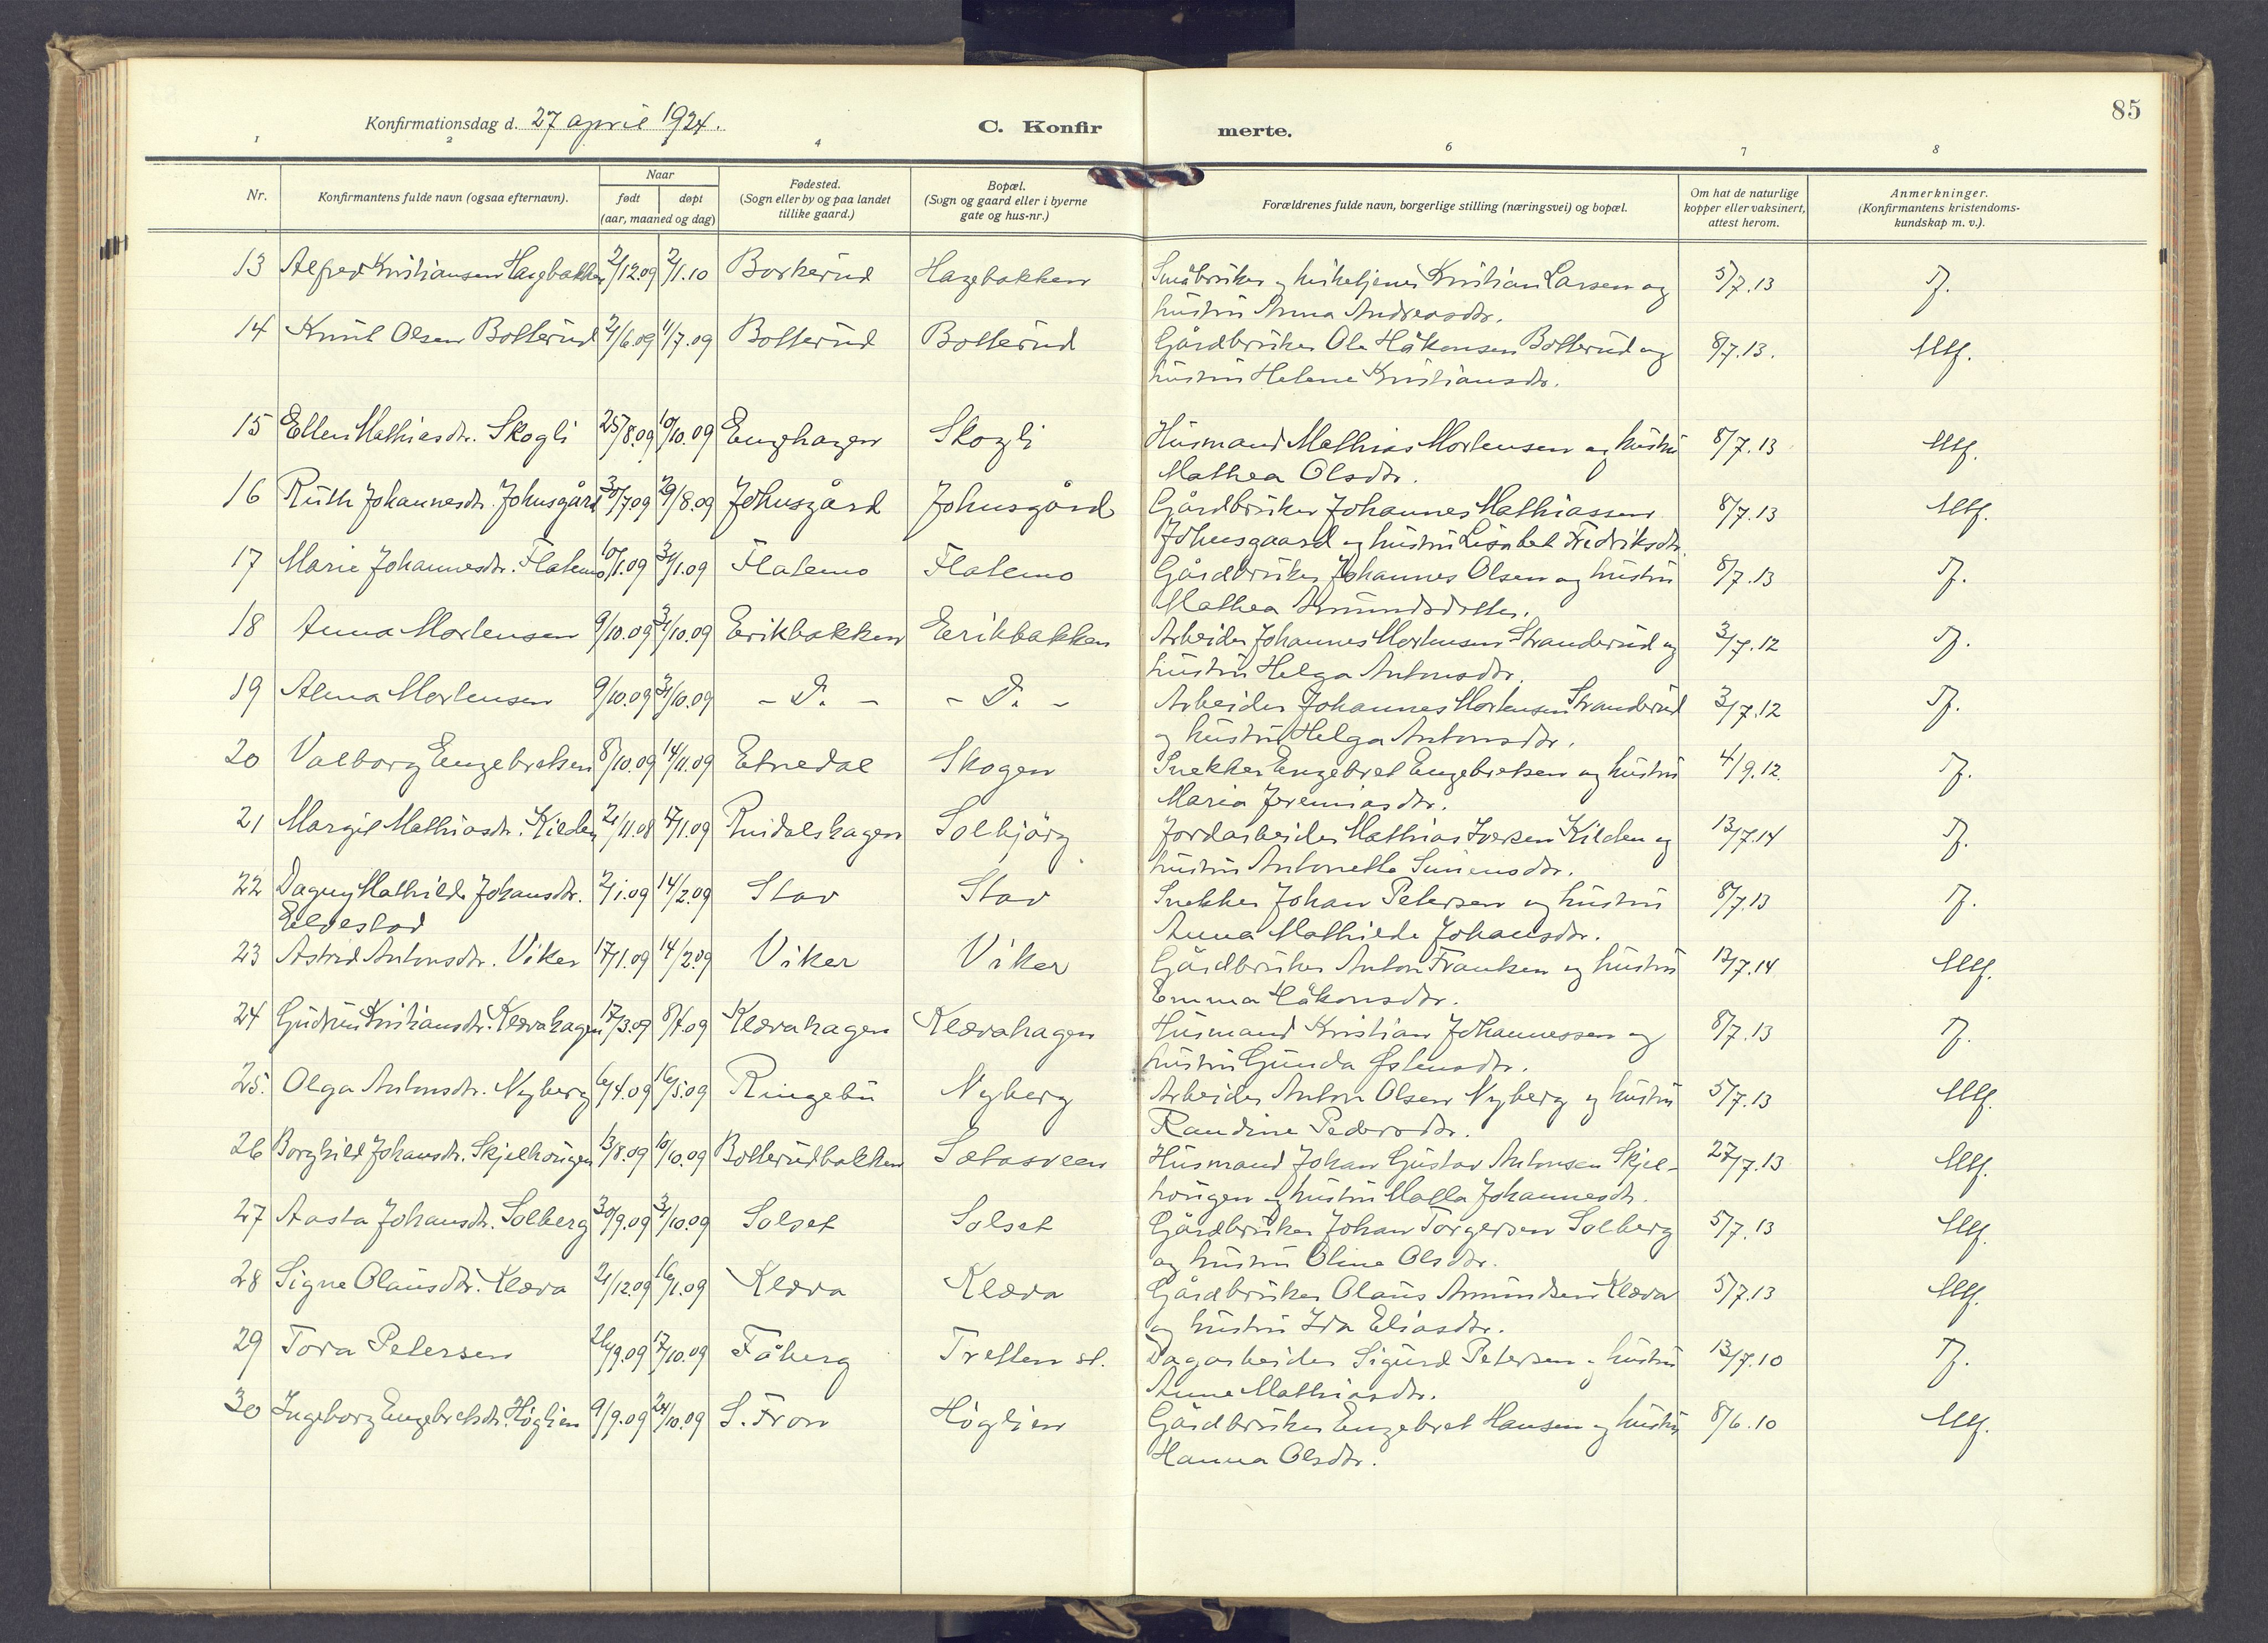 85
Konfirmationsdag d. 27 april 1924.
C. Konfir merte.
1 2 4 6 7 8
Nr.
Konfirmantens fulde navn (ogsaa efternavn).
Naar
født døpt
(aar, maaned og dag)
Fødested.
(Sogn eller by og paa landet
tillike gaard.)
Bopæl.
(Sogn og gaard eller i byerne
gate og hus-nr.)
Forældrenes fulde navn, borgerlige stilling (næringsvei) og bopæl.
Om hat de naturlige
kopper eller vaksinert,
attest herom.
Anmerkninger.
(Konfirmantens kristendoms-
kundskap m. v.).
13 Alfred Kristiansen Hagebakken 2/12.09 2/1.10 Borkerud Hagebakken Småbruker og kirketjener Kristian Larsen og 5/7.13 T.
hustru Anna Andreasdtr.
14 Knut Olsen Botterud /6.09 11/7.09 Botterud Botterud Gårdbruker Ole Håkonsen Botterud og 8/7.13. Mtf.
hustru Helene Kristiansdtr.
15 Ellen Mathiasdtr. Skogli 25/8.09 10/10.09 Enghagen Skogli Husmand Mathias Mortensen og hustru 8/7.13 Mtf.
Mathea Olsdtr.
16 Ruth Johannesdtr. Johnsgård 30/7.09 29/8.09 Johnsgård Johnsgård Gårdbruker Johannes Mathiassen 8/7.13 Mtf.
Johnsgaard og hustru Lisabet Fredriksdtr.
17 Marie Johannesdtr. Flatemo 10/1.09 31/1.09 Flatemo Flatemo Gårdbruker Johannes Olsen og hustru 8/7.13 T.
Mathea Amundsdotter.
18 Anna Mortensen 9/10.09 31/10.09 Erikbakken Erikbakken Arbeider Johannes Mortensen Stranderud og 3/7.12 T.
hustru Helga Antonsdtr.
19 Alma Mortensen 9/10.09 31/10.09 - D. - - D. - Arbeider Johannes Mortensen Stranderud 3/7.12 T.
og hustru Helga Antonsdtr.
20 Valborg Engebretsen 8/10.09 14/11.09 Etnedal Skogen Snekker Engebret Engebretsen og hustru 4/9.12. T.
Maria Jeremiasdtr.
21 Margit Mathiasdtr. Kilden 21/11.08 17/1.09 Ruidalshagen Solbjörg Jordarbeider Mathias Iversen Kilden og 13/7.14 T.
hustru Antonette Simensdtr.
22 Dagny Mathilde Johansdtr. 2/1.09 14/2.09 Stav Stav Snekker Johan Petersen og hustru 8/7.13 T.
Eldestad Anna Mathilde Johansdtr.
23 Astrid Antonsdtr. Viker 17/1.09 14/2.09 Viker Viker Gårdbruker Anton Frantsen og hustru 13/7.14 Mtf.
Emma Håkonsdtr.
24 Gudrun Kristiansdtr. Klævahagen 17/3.09 8/4.09 Klævahagen Klævahagen Husmand Kristian Johannessen og 8/7.13 T.
hustru Gunda Østensdtr.
25. Olga Antonsdtr. Nyberg 6/4.09 16/5.09 Ringebu Nyberg Arbeider Anton Olsen Nyberg og hustru 5/7.13 Mtf.
Randine Pedersdtr.
26 Borghild Johansdtr. Skjelhougen 13/8.09 10/10.09 Botterudbakken Sotasveen Husmand Johan Gustav Antonsen Skjel- 27/7.13 Mtf.
hougen og hustru Malla Johannesdtr.
27 Aasta Johansdtr. Solberg 30/9.09 31/10.09 Solset Solset Gårdbruker Johan Torgersen Solberg 5/7.13 Mtf.
og hustru Oline Olsdtr.
28 Signe Olausdtr. Klæva 21/12.09 16/1.09 Klæva Klæva Gårdbruker Olaus Amundsen Klæva 5/7.13 Mtf.
og hustru Ida Eliasdtr.
29 Tora Petersen 26/9.09 17/10.09 Fåberg Tretten st. Dagarbeider Sigurd Petersen og hustru 13/7.10 T.
Anne Mathiasdtr.
30 Ingeborg Engebretsdtr. Höglien 9/9.09 24/10.09 S. Fron Höglien Gårdbruker Engebret Hansen og hustru 8/6.10 Mtf.
Hanna Olsdtr.